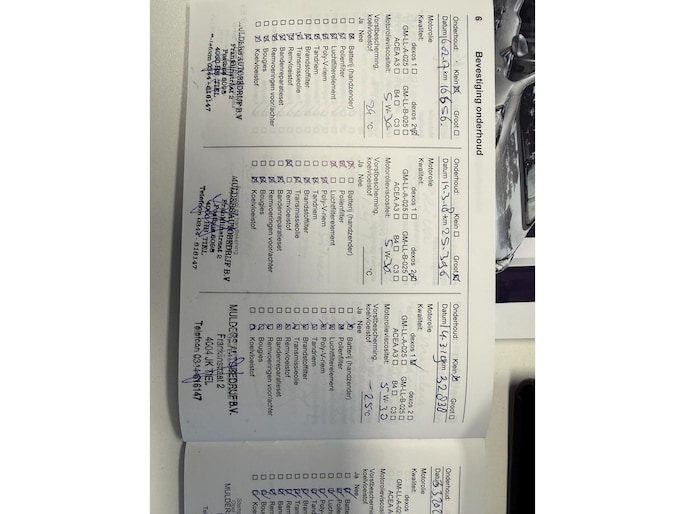 6 Bevestiging onderhoud
Onderhoud: Klein ☒ Groot ☐
Datum 16.02.17 km 16656.
Motorolie
Kwaliteit: dexos 1 ☐ dexos 2 ☒
GM-LL-A-025 ☐ GM-LL-B-025 ☐
ACEA A3 ☐ B4 ☐ C3 ☐
Motorolieviscositeit: 5 W-30
Vorstbescherming,
koelvloeistof °C
Ja Nee
Batterij (handzender)
Pollenfilter
Luchtfilterelement
Poly-V-riem
Tandriem
Brandstoffilter
Transmissieolie
Remvloeistof
Bandenreparatieset
Remvoeringen voor/achter
Bougies
Koelvloeistof
MULDERS AUTOBEDRIJF B.V
Franklinstraat 2
4000 HB TIEL
Telefoon 0344-616147
Onderhoud: Klein ☐ Groot ☒
Datum 14-3-18 km 25.396
Motorolie
Kwaliteit: dexos 1 ☐ dexos 2 ☒
GM-LL-A-025 ☐ GM-LL-B-025 ☐
ACEA A3 ☐ B4 ☐ C3 ☐
Motorolieviscositeit: 5 W-30
Vorstbescherming,
koelvloeistof °C
Ja Nee
Batterij (handzender)
Pollenfilter
Luchtfilterelement
Poly-V-riem
Tandriem
Brandstoffilter
Transmissieolie
Remvloeistof
Bandenreparatieset
Remvoeringen voor/achter
Bougies
Koelvloeistof
MULDERS AUTOBEDRIJF B.V
Franklinstraat 2
TIEL
Telefoon 0344 - 616147
Onderhoud: Klein ☒ Groot ☐
Datum 14.3.19 km 32030
Motorolie
Kwaliteit: dexos 1 ☒ dexos 2 ☐
GM-LL-A-025 ☐ GM-LL-B-025 ☐
ACEA A3 ☐ B4 ☐ C3 ☐
Motorolieviscositeit: 5 W-30
Vorstbescherming,
koelvloeistof -25 °C
Ja Nee
Batterij (handzender)
Pollenfilter
Luchtfilterelement
Poly-V-riem
Tandriem
Brandstoffilter
Transmissieolie
Remvloeistof
Bandenreparatieset
Remvoeringen voor/achter
Bougies
Koelvloeistof
MULDERS AUTOBEDRIJF B.V.
Franklinstraat 2
4004 JK TIEL
Telefoon 0344-616147
Onderhoud:
Motorolie
Kwaliteit:
GM-LL-A-02
ACEA A
Motorolieviscositeit
Vorstbescherming
koelvloeistof
Ja Nee
MULDER